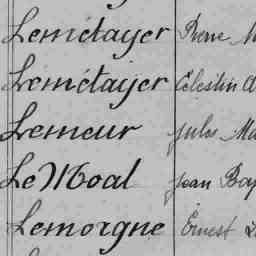 Lemétayer Pierre
Lemétaijer Célestin
Lemeur Jules
Le Moal Jean
Lemorgne Ernest